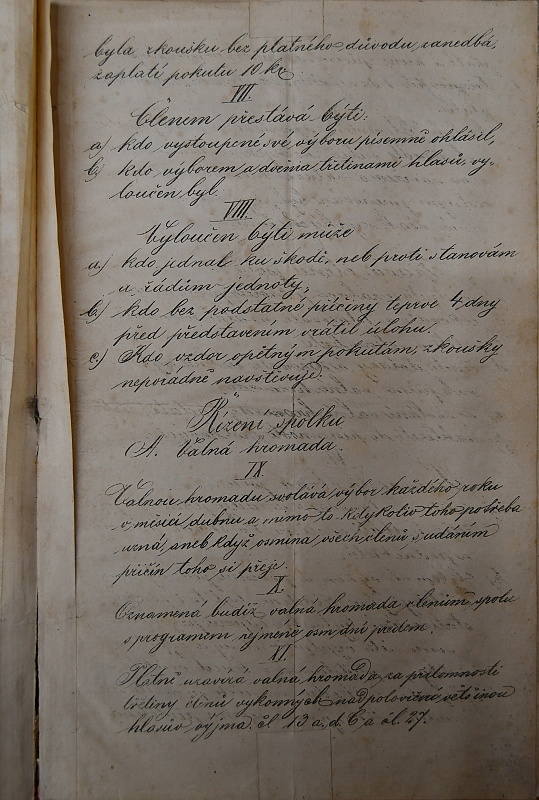 byla zkoušku bez platného důvodu zanedbá,
zaplatí pokutu 10 kr.
VII.
Členem přestává býti:
a) kdo vystoupení své výboru písemně ohlásil,
b) kdo výborem a dvěma třetinami hlasů vy-
loučen byl.
VIII.
Vyloučen býti může
a.) kdo jednal ku škodě, neb proti stanovám
a řádům jednoty,
b.) kdo bez podstatné příčiny teprve 4 dny
před představením vrátil úlohu.
c) Kdo vzdor opětným pokutám, zkoušky
nepořádně navštěvuje.
Řízení spolku
A. Valná hromada.
IX
Valnou hromadu svolává výbor každého roku
v měsíci dubnu a mimo to kdykoliv toho potřeba
uzná, aneb když osmina všech členů s udáním
příčin toho si přeje.
X.
Oznamená budiž valná hromada členům spolu
s programem nejméně osm dní předem.
XI.
Platně uzavírá valná hromada za přítomnosti
třetiny členů výkonných nadpoloviční většinou
hlasův výjma čl 13 a, d. C a čl. 27.